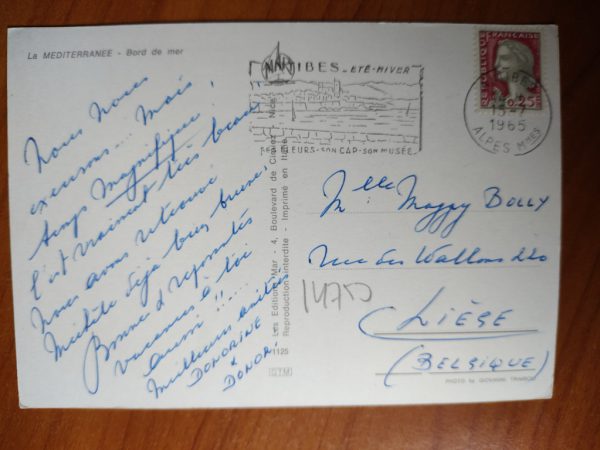 La MEDITERRANEE - Bord de mer
Nous nous
excusons... Mais
temps magnifique !
C'est vraiment très beau
Nous avons retrouvé
Michèle déjà bien brunie.
Bonne & reposantes
vacances à toi
aussi !! ....
Meilleures amitiés
DONORINE
&
DONOR.
ANTIBES - ÉTÉ-HIVER
SES FLEURS - SON CAP - SON MUSÉE
REPUBLIQUE FRANÇAISE
0,25
1965
ALPES Mmes
Les Editions Mar - 4, Boulevard de Cimiez - Nice
Reproduction interdite - Imprimé en Italie
1125
CTM
Mlle Maggy BOLLY
rue des Wallons 220
14750
LIÈGE
(BELGIQUE)
PHOTO by GIOVANNI